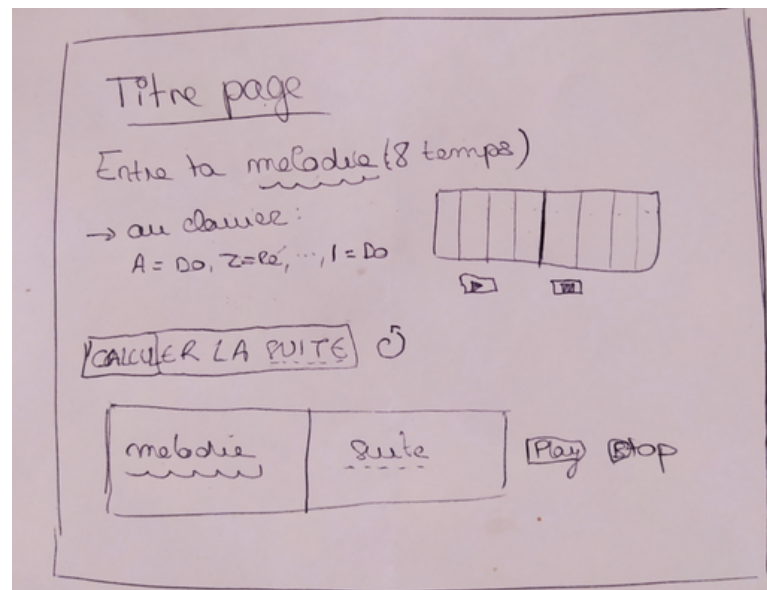 Titre page
Entre ta melodie (8 temps)
→ au clavier:
A = Do, Z = Ré, ..., I = Do
CALCULER LA SUITE
melodie
suite
Play
Stop